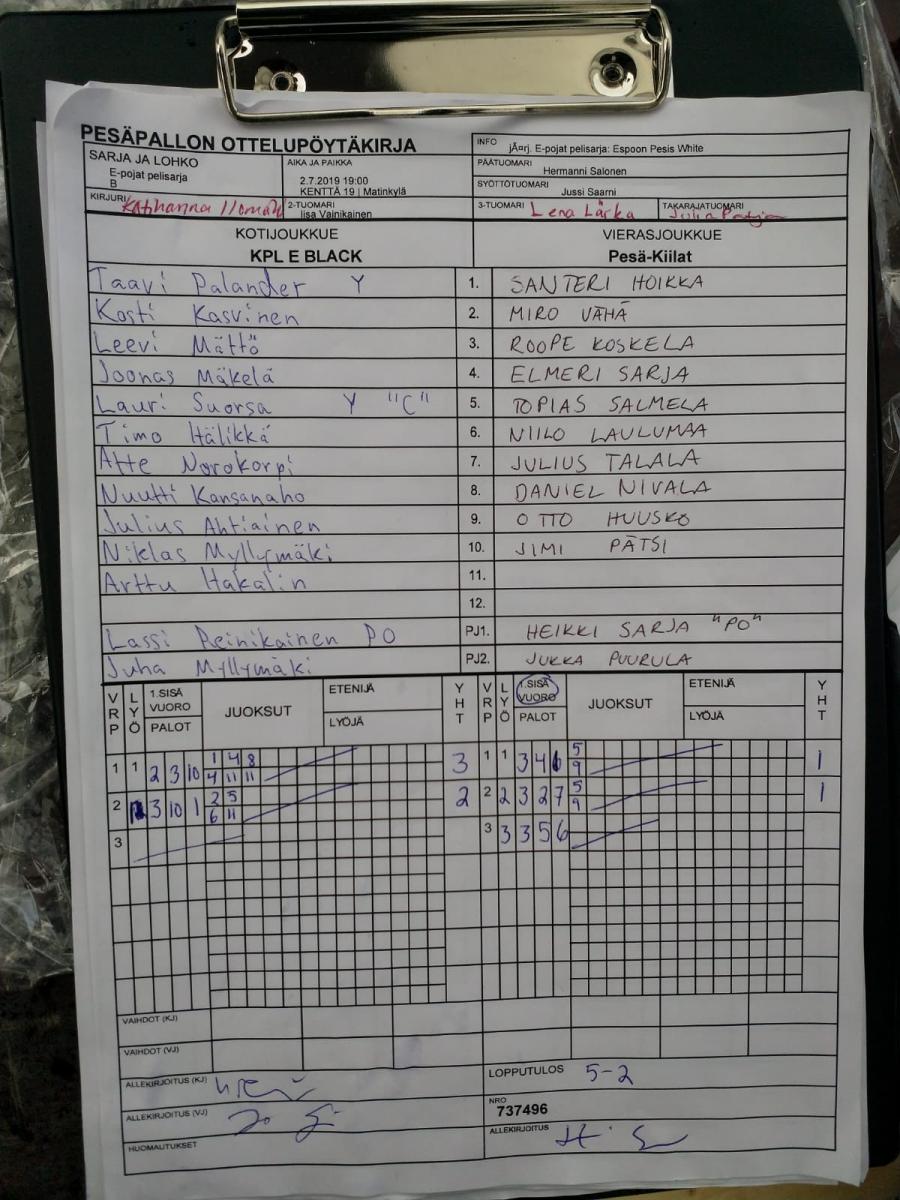 PESÄPALLON OTTELUPÖYTÄKIRJA
INFO jÃ¤rj. E-pojat pelisarja: Espoon Pesis White
SARJA JA LOHKO
E-pojat pelisarja
B
AIKA JA PAIKKA
2.7.2019 19:00
KENTTÄ 19 | Matinkylä
PÄÄTUOMARI
Hermanni Salonen
SYÖTTÖTUOMARI
Jussi Saarni
KIRJURI
2-TUOMARI
Iisa Vainikainen
3-TUOMARI Lena Lärka
TAKARAJATUOMARI
KOTIJOUKKUE VIERASJOUKKUE
KPL E BLACK Pesä-Kiilat
Taavi Palander Y 1. SANTERI HOIKKA
Kosti Kasvinen 2. MIRO VÄHÄ
Leevi Mättö 3. ROOPE KOSKELA
Joonas Mäkelä 4. ELMERI SARJA
Lauri Suorsa Y "C" 5. TOPIAS SALMELA
Timo Hälikkä 6. NIILO LAULUMAA
Atte Norokorpi 7. JULIUS TALALA
Nuutti Kansanaho 8. DANIEL NIVALA
Julius Ahtiainen 9. OTTO HUUSKO
Niklas Myllymäki 10. JIMI PÄTSI
Arttu Hakalin 11.
12.
Lassi Reinikainen PO PJ1. HEIKKI SARJA "PO"
Juha Myllymäki PJ2. JUKKA PUURULA
VRP LYÖ 1.SISÄ VUORO PALOT JUOKSUT ETENIJÄ LYÖJÄ YHT VRP LYÖ 1.SISÄ VUORO PALOT JUOKSUT ETENIJÄ LYÖJÄ YHT
1 1 2 3 10 1 4 8 3 1 1 3 4 5 1
4 11 11 9
2 3 10 1 2 5 2 2 2 3 2 7 5 1
6 11 9
3 3 3 5 6
VAIHDOT (KJ)
VAIHDOT (VJ)
ALLEKIRJOITUS (KJ)
LOPPUTULOS 5-2
ALLEKIRJOITUS (VJ)
NRO
737496
HUOMAUTUKSET
ALLEKIRJOITUS